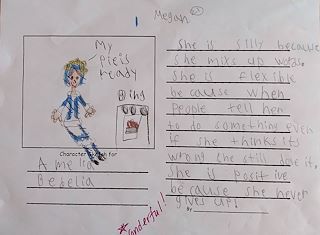 Megan
My
pie is
ready
Bing
Character Sketch for
Amelia
Bebelia
She is silly because
she mixs up words.
She is flexible
because when
People tell her
to do something even
if she thinks its
wrong she still does it.
She is positive
because she never
gives up!
By
Wonderful!